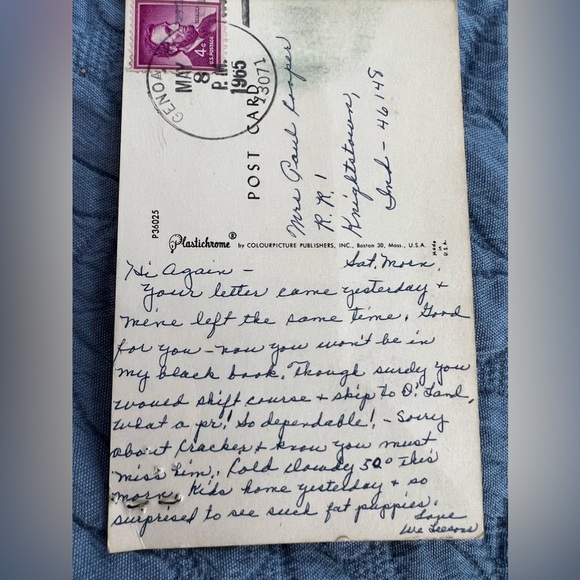 4¢
U.S. POSTAGE
GENOA
MAY
8
P.M.
1965
13071
POST CARD
Mrs Paul Cooper
R.R. 1
Knightstown,
Ind - 46148
P36025
Plastichrome ® by COLOURPICTURE PUBLISHERS, INC., Boston 30, Mass., U.S.A.
Made in U.S.A.
Hi Again - Sat. Morn.
Your letter came yesterday +
mine left the same time. Good
for you - now you won't be in
my black book. Though surely you
would shift course + skip to D'Land,
What a pr! So dependable! - Sorry
about Cracker + know you must
miss him. Cold cloudy 50° this
morn. Kids home yesterday + so
surprised to see such fat puppies.
Love
We